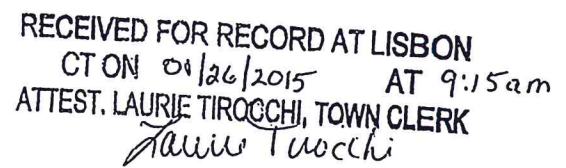 RECEIVED FOR RECORD AT LISBON
CT ON 01/26/2015 AT 9:15am
ATTEST. LAURIE TIROCCHI, TOWN CLERK
Laurie Tirocchi